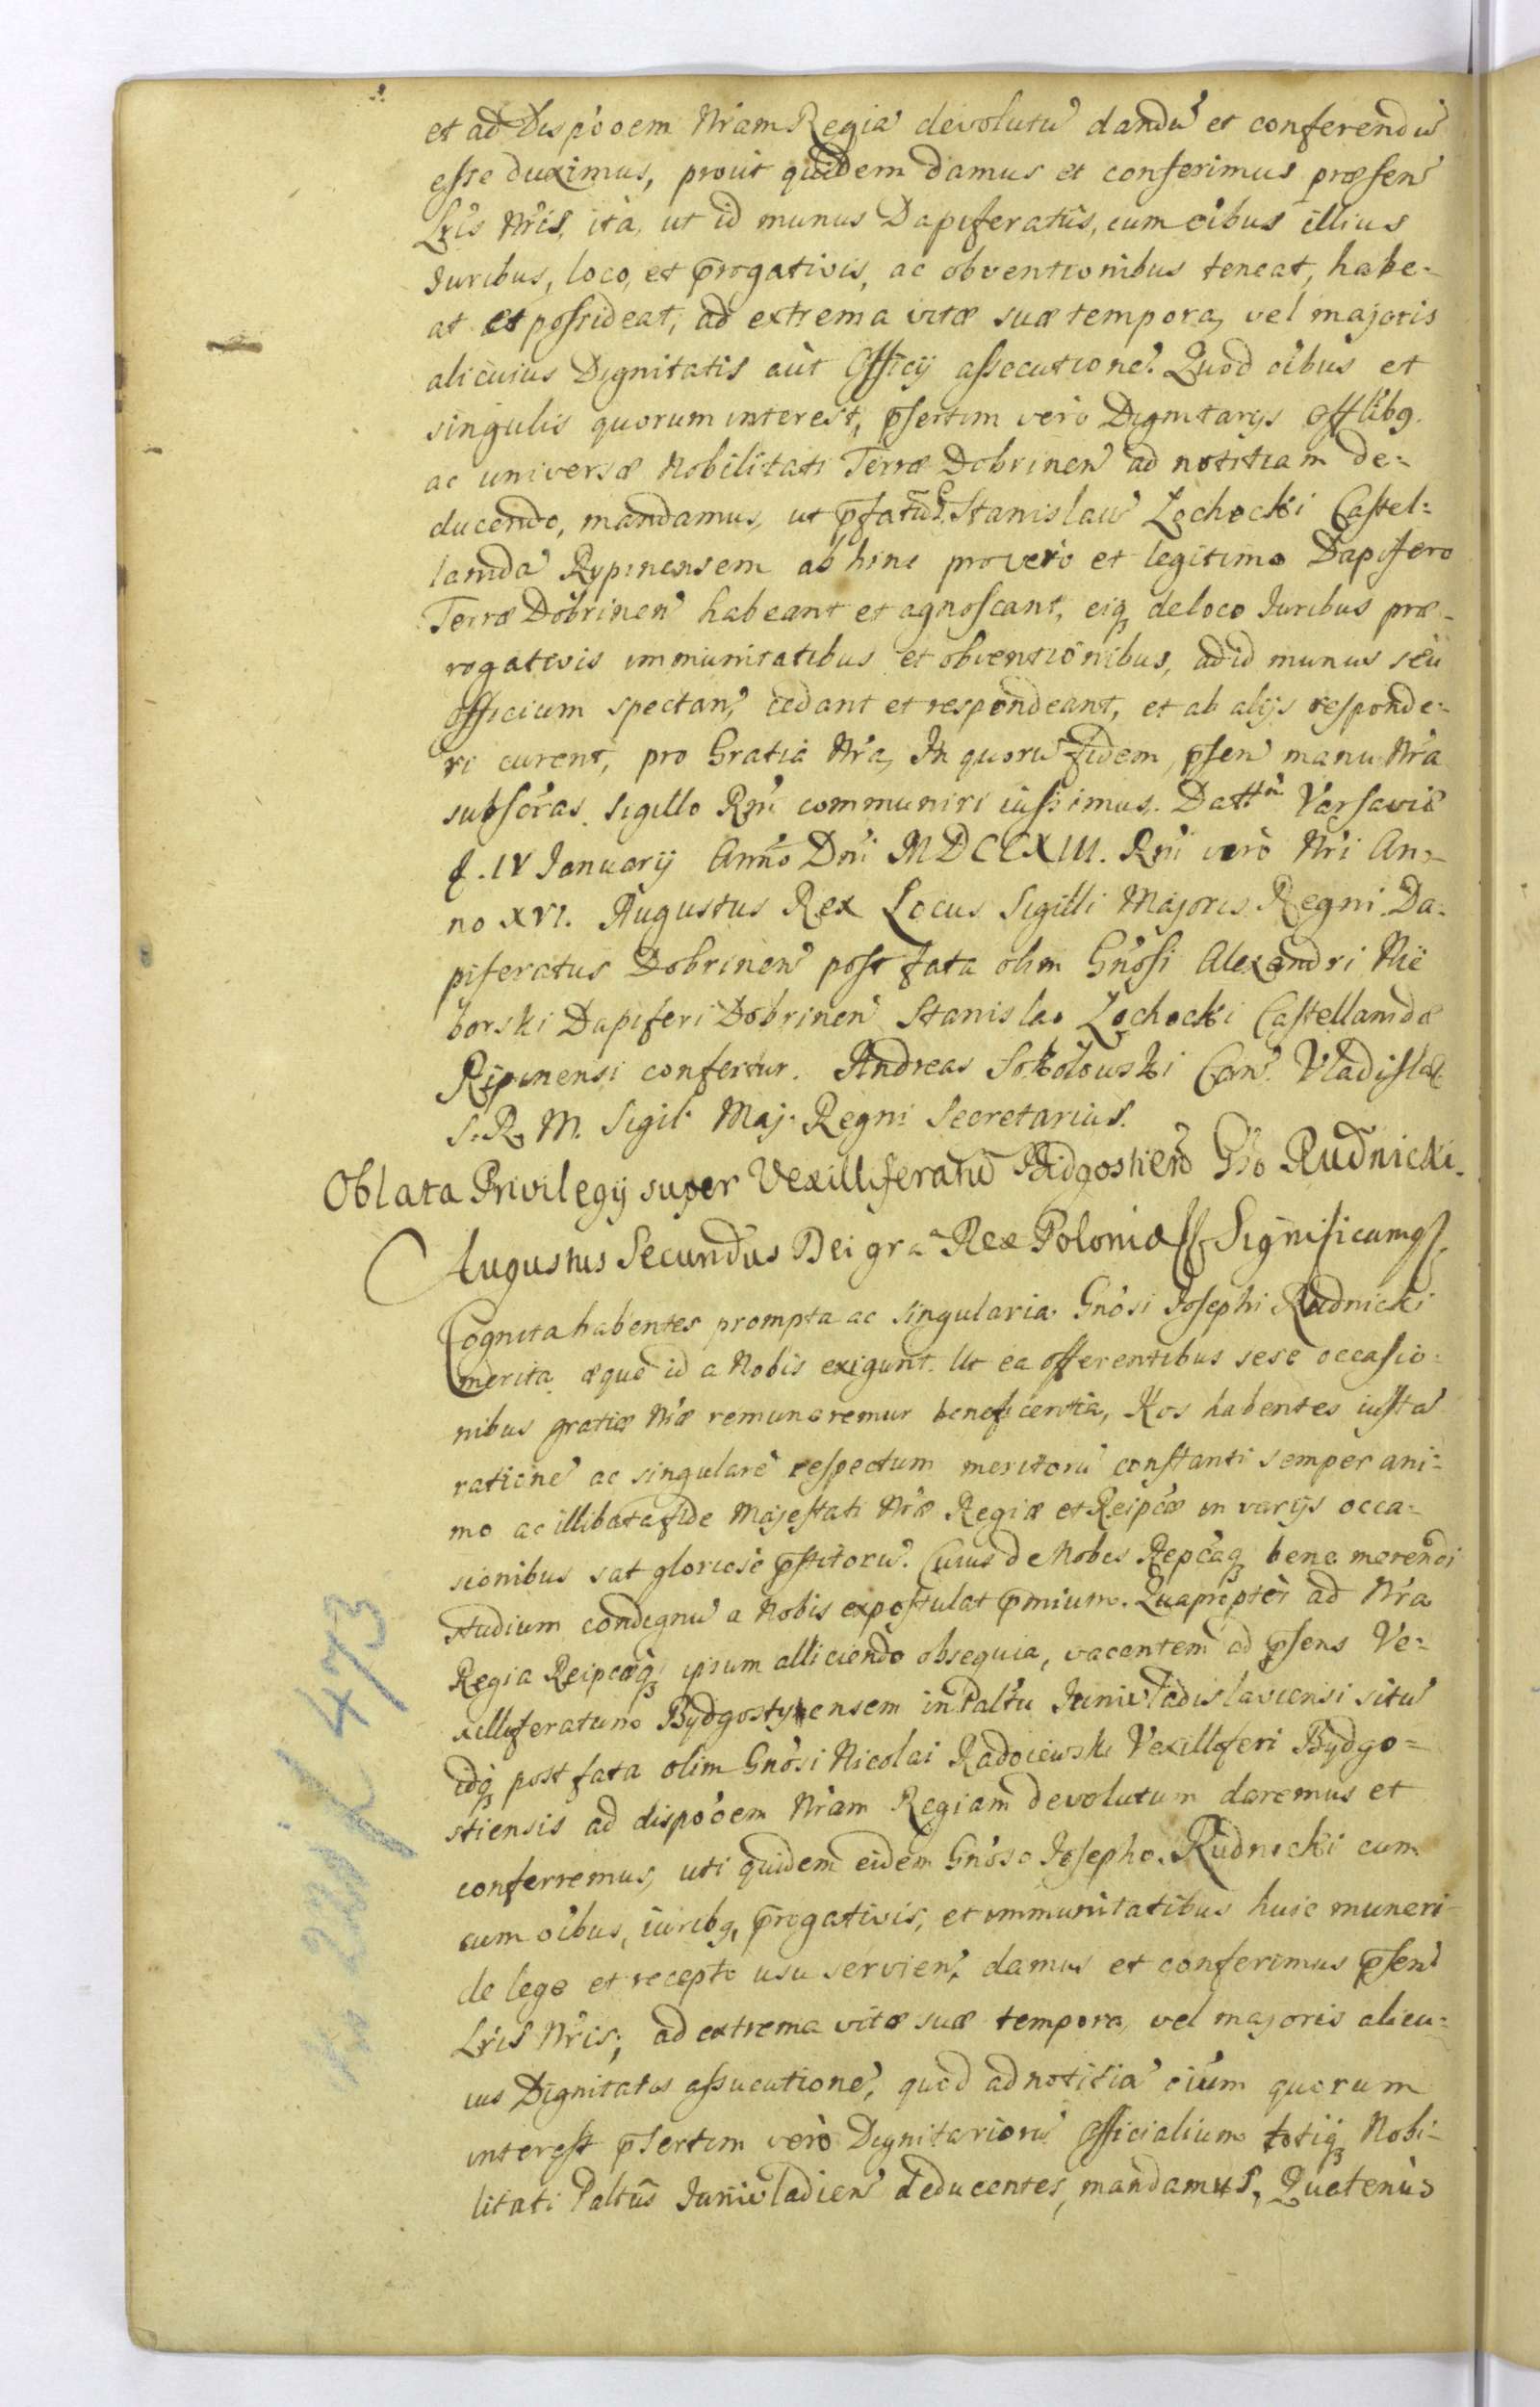 et ad Dispo'oem Nr'am Regia' devolutu' dandu' et conferendu'
esse duximus, prout quidem damus et conferimus præsen'
Lr'is Nr'is, ita, ut id munus Dapiferatûs, cum o'ibus illius
Iuribus, loco, et p̄rogativis, ac obventionibus teneat, habe=
at et possideat, ad extrema vitæ suæ tempora, vel majoris
alicuius Dignitatis aut Officij assecutione'. Quod o'ibus et
singulis quorum interest, p̄sertim vero Dignitarijs Off'libq.
ac universæ Nobilitati Terræ Dobrinen' ad notitiam de=
ducendo, mandamus, ut p̄fatu' G. Stanislau' Łochocki Castel=
lanida' Rypinensem ab hinc pro vero et legitimo Dapifero
Terræ Dobrinen' habeant et agnoscant, eiq, de loco Iuribus præ=
rogativis immunitatibus et obventionibus, ad id munus seu
officium spectan', cedant et respondeant, et ab alijs responde=
ri curent, pro Gratia Nr'a, In quoru' fidem, p̄sen' manu Nr'a
subscr'as. Sigillo Rn'i communiri iussimus. Datt'm Varsaviæ
d. IV Ianuarij Anno Dn'i MDCCXIII. Rn'i vero Nr'i An=
no XVI. Augustus Rex Locus Sigilli Majoris Regni Da=
piferatus Dobrinen' post fata olim Gn'osi Alexandri Nie
borski Dapiferi Dobrinen' Stanislao Łochocki Castellanidæ
Ripinensi confertur. Andreas Sokołowski Can'. Vladisla
S. R. M. Sigil. Maj. Regni Secretarius.
Oblata Privilegij super Vexilliferatu' Bidgostien' G'so Rudnicki.
Augustus Secundus Dei gr'a Rex Poloniæ ss Significamq ss.
Cognita habentes prompta ac singularia Gn'osi Josephi Rudnicki
merita æque id a Nobis exigunt. Ut ea offerentibus sese occasio=
nibus gratiæ N'ræ remuneremur beneficentia, Nos habentes iusta'
ratione' ac singulare' respectum meritoru' constanti semper ani=
mo ac illibata fide Majestati Nr'æ Regiæ et Reip'cæ in varijs occa=
sionibus sat gloriose p̄stitoru'. Cuius de Nobis Rep'caq, bene merendi
studium condignu' a Nobis expostulat p̄mium. Quapropter ad Nr'a
Regia Reip'cæq, ipsum alliciendo obsequia, vacantem ad p̄sens Ve=
xilliferatum Bydgostyensem in Palt'u Juniwladislaviensi situ'
idq, post fata olim Gn'osi Nicolai Radoiewski Vexilliferi Bydgo=
stiensis ad dispo'oem Nr'am Regiam devolutum daremus et
conferremus, uti quidem eidem Gn'oso Josepho Rudnicki cum
cum o'ibus, iuribq, p̄rogativis, et immunitatibus huic muneri
de lege et recepto usu servien', damus et conferimus p̄sen'
Lr'is Nr'is, ad extrema vitæ suæ tempora, vel majoris alicu=
ius Dignitatis assecutione', quod ad notitia' o'ium quorum
interest p̄sertim vero Dignitarioru' Officialium totiq, Nobi=
litati Palt'us Juniwladien' deducentes, mandamus, Quatenus
473